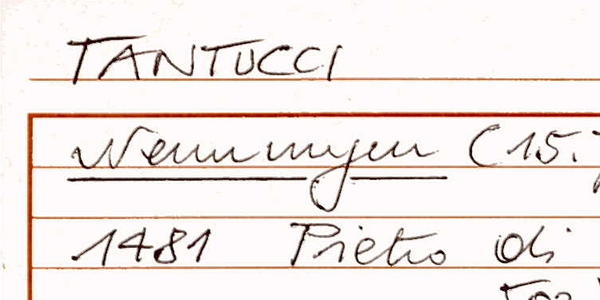 TANTUCCI
Nennungen (15.
1481 Pietro di